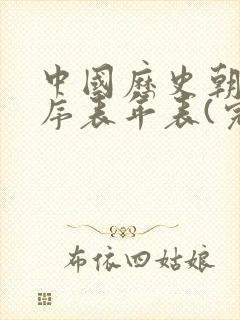 中國歷史朝
序表年表(完
布依四姑娘